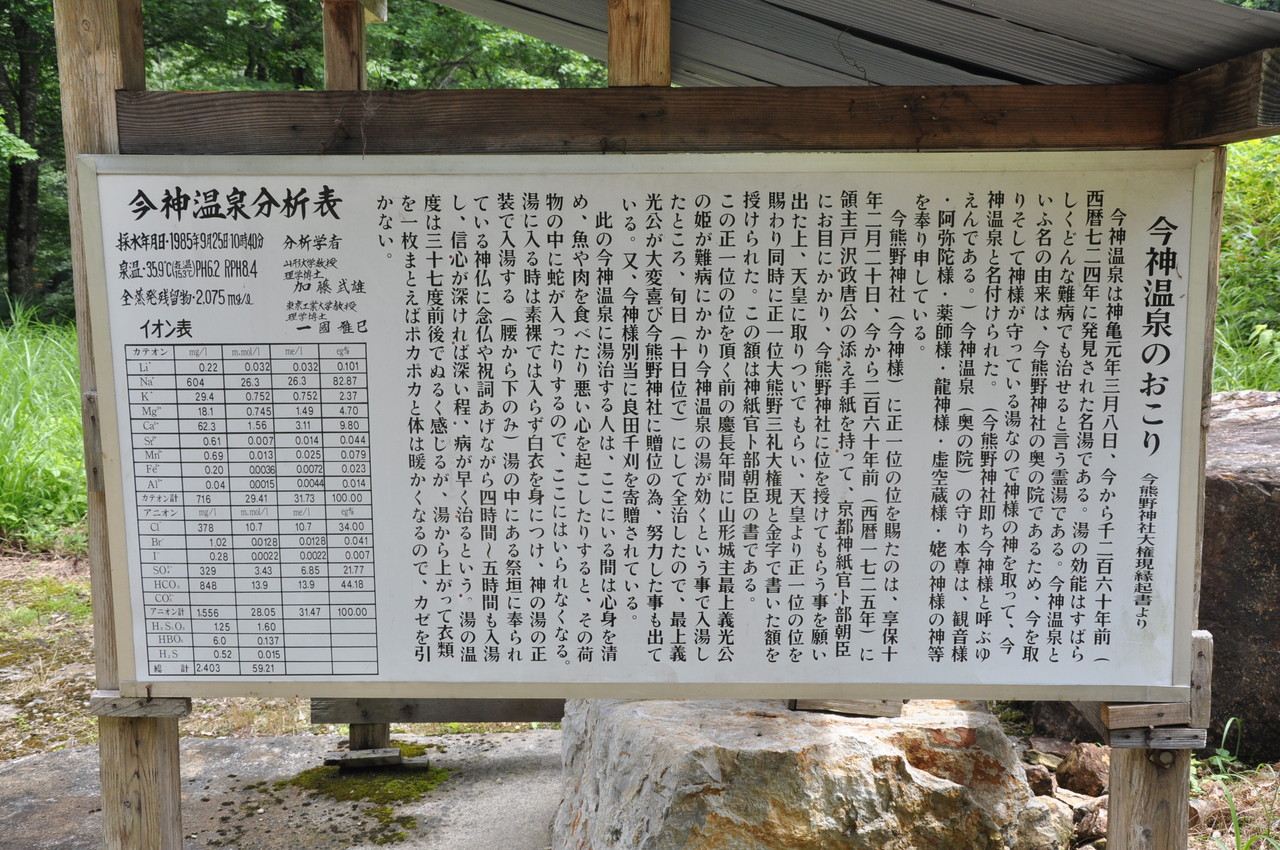 今神温泉のおこり
今熊野神社大権現縁起書より
今神温泉は神亀元年三月八日、今から千二百六十年前（
西暦七二四年に発見された名湯である。湯の効能はすばら
しくどんな難病でも治せると言う霊湯である。今神温泉と
いふ名の由来は、今熊野神社の奥の院であるため、今を取
りそして神様が守っている湯なので神様の神を取って、今
神温泉と名付けられた。（今熊野神社即ち今神様と呼ぶゆ
えんである。）今神温泉（奥の院）の守り本尊は、観音様
・阿弥陀様・薬師様・龍神様・虚空蔵様・姥の神様の神等
を奉り申している。
今熊野神社（今神様）に正一位の位を賜たのは、享保十
年二月二十日、今から二百六十年前（西暦一七二五年）に
領主戸沢政唐公の添え手紙を持って、京都神紙官卜部朝臣
にお目にかかり、今熊野神社に位を授けてもらう事を願い
出た上、天皇に取りついてもらい、天皇より正一位の位を
賜わり同時に正一位大熊野三礼大権現と金字で書いた額を
授けられた。この額は神紙官卜部朝臣の書である。
この正一位の位を頂く前の慶長年間に山形城主最上義光公
の姫が難病にかかり今神温泉の湯が効くという事で入湯し
たところ、旬日（十日位で）にして全治したので、最上義
光公が大変喜び今熊野神社に贈位の為、努力した事も出て
いる。又、今神様別当に良田千刈を寄贈されている。
此の今神温泉に湯治する人は、ここにいる間は心身を清
め、魚や肉を食べたり悪い心を起こしたりすると、その荷
物の中に蛇が入ったりするので、ここにはいられなくなる。
湯に入る時は素裸では入らず白衣を身につけ、神の湯の正
装で入湯する（腰から下のみ）湯の中にある祭垣に奉られ
ている神仏に念仏や祝詞あげながら四時間～五時間も入湯
し、信心が深ければ深い程、病が早く治るという。湯の温
度は三十七度前後でぬるく感じるが、湯から上がって衣類
を一枚まとえばポカポカと体は暖かくなるので、カゼを引
かない。
今神温泉分析表
採水年月日・1985年9月25日10時40分
泉温・35.9℃ PH6.2 RPH8.4
全蒸発残留物・2.075 mg/ℓ
分析学者
山形大学教授
理学博士
加藤武雄
東京工業大学教授
理学博士
一國雅巳
イオン表
カテオン mg/l m.mol/l me/l eg%
Li⁺ 0.22 0.032 0.032 0.101
Na⁺ 604 26.3 26.3 82.87
K⁺ 29.4 0.752 0.752 2.37
Mg²⁺ 18.1 0.745 1.49 4.70
Ca²⁺ 62.3 1.56 3.11 9.80
Sr²⁺ 0.61 0.007 0.014 0.044
Mn²⁺ 0.69 0.013 0.025 0.079
Fe²⁺ 0.20 0.0036 0.0072 0.023
Al³⁺ 0.04 0.0015 0.0044 0.014
カテオン計 716 29.41 31.73 100.00
アニオン mg/l m.mol/l me/l eg%
Cl⁻ 378 10.7 10.7 34.00
Br⁻ 1.02 0.0128 0.0128 0.041
I⁻ 0.28 0.0022 0.0022 0.007
SO₄²⁻ 329 3.43 6.85 21.77
HCO₃⁻ 848 13.9 13.9 44.18
CO₃²⁻
アニオン計 1.556 28.05 31.47 100.00
H₂S₁O₃ 1.25 1.60
HBO₂ 6.0 0.137
H₂S 0.52 0.015
総計 2.403 59.21